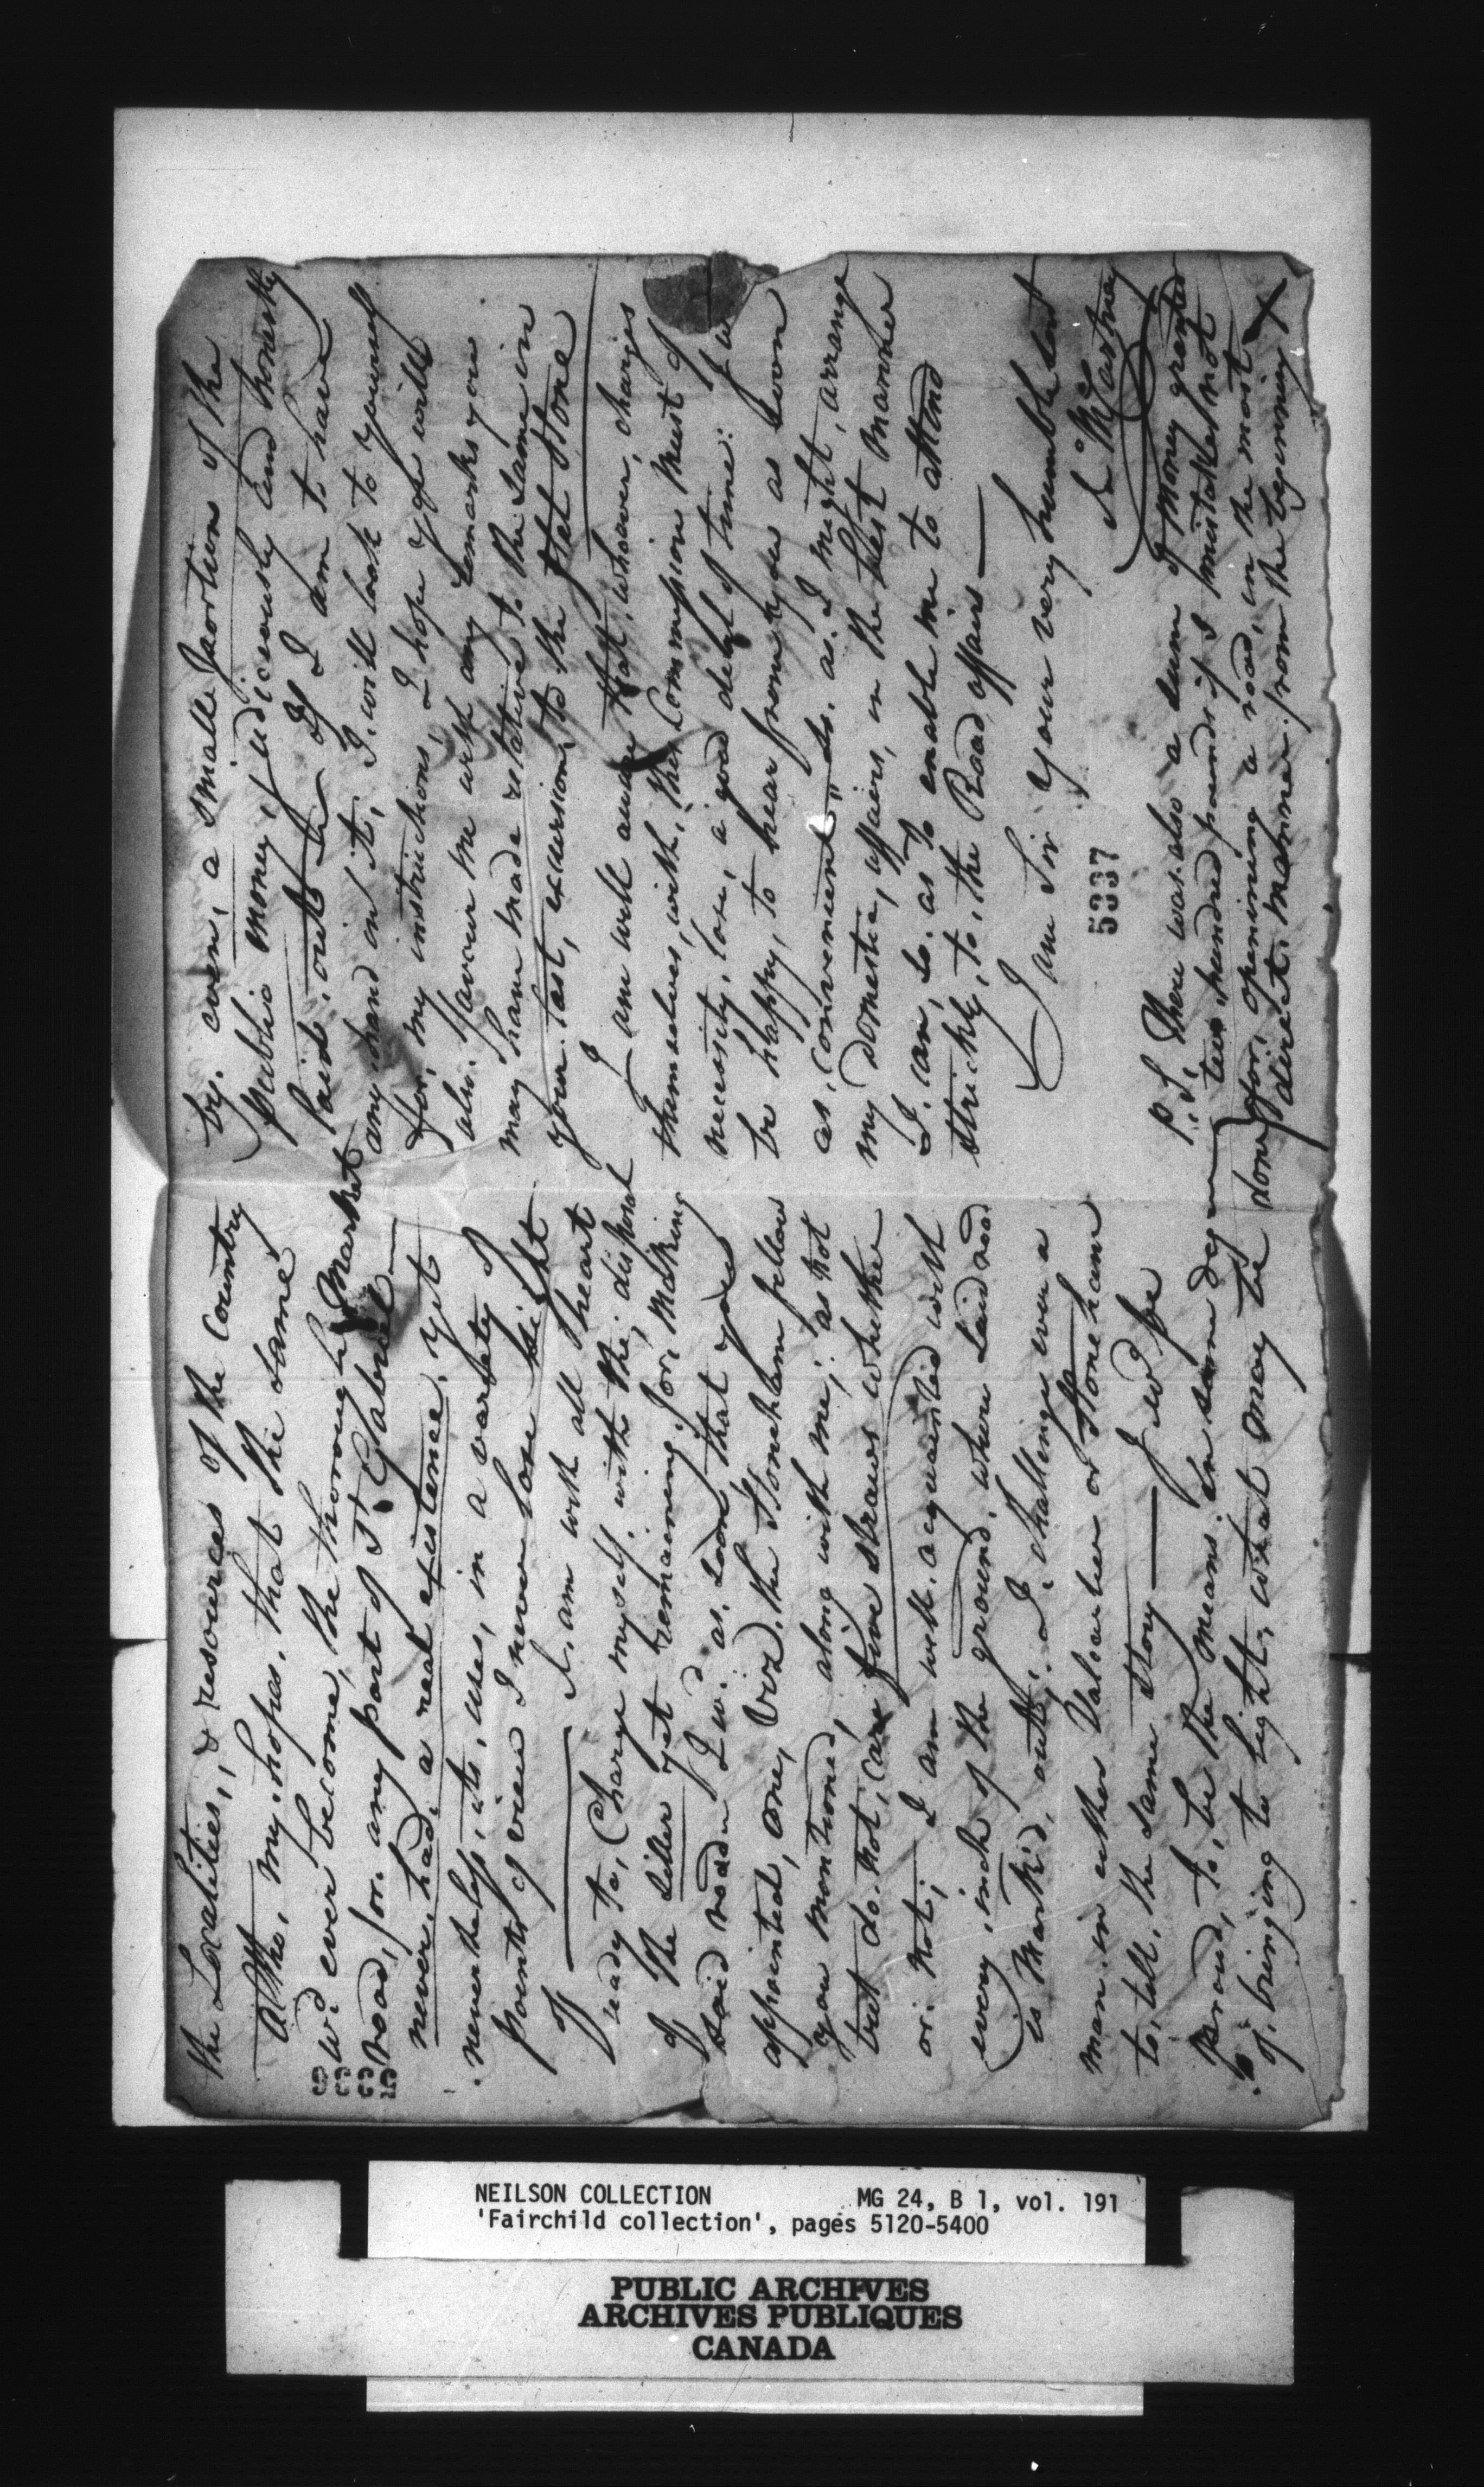 the Localities, & resources of the Country
Altho, my, hopes, that the same
wd. ever become, the thorough Market
road, for any part of St. Gabriel
never, had, a real existence, yet
nevertheless, its, uses, in a variety of
points of view I never lose sight
of — I. am with all heart
ready to, Charge myself, with the disposal
of the litter yet remaining, for, making
said road I wd. as. soon, that you
appointed, one, Viz. the Stoneham fellow
you mentioned, along with me; as not
but do. not, care five straws whether
or. not; I am well. acquainted with
every, inch of the ground, where said road
is Mark'd, out, I. challenge even a
man. in either Valcartier or Stoneham
to, tell. the same story — I wd. be
proud, to, be the means. in some degree
of, bringing to light, what may be done
5336
by. even, a small portion of the
public money, judiciously and honestly
laid, out — If I am to have
any hand in it, I. will look to yourself
for, my instructions, I hope you will
also. favour me with any remarks you
may have made relative to the same in
your last, excursion, to the
I am well aware that, whoever, charges
themselves, with, this Commission must of
necessity, lose, a good deal of time: I wd
be happy, to hear from you as soon
as, convenient, so. as. I might, arrange
my domestic, affairs, in the best manner
I. can, so. as to enable me to attend
strictly, to, the Road, affairs —
I am Sir your very humble Servt
A. McCartney
5337
P.S, There was. also a sum of Money granted
two, hundred pounds if I mistake not
for, opening a road, in the most
direct. manner. from the beginning
NEILSON COLLECTION MG 24, B 1, vol. 191
'Fairchild collection', pages 5120-5400
PUBLIC ARCHIVES
ARCHIVES PUBLIQUES
CANADA